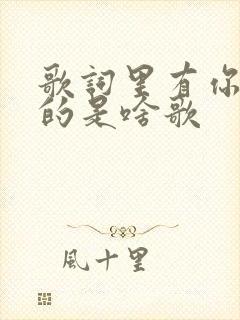 歌詞里有你
的是啥歌
風十里